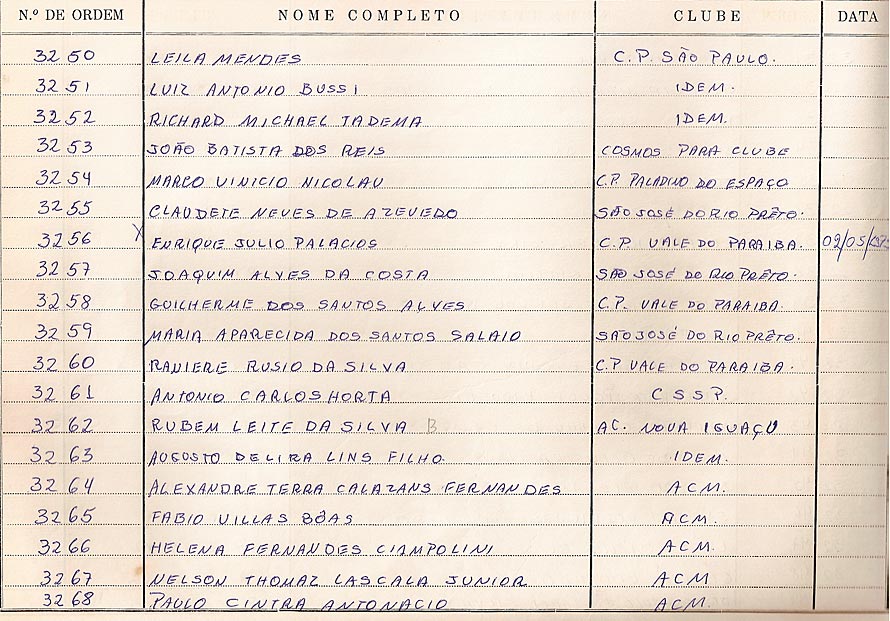 N.º DE ORDEM NOME COMPLETO CLUBE DATA
3250 LEILA MENDES C.P. SÃO PAULO.
3251 LUIZ ANTONIO BUSSI IDEM.
3252 RICHARD MICHAEL TADEMA IDEM.
3253 JOÃO BATISTA DOS REIS COSMOS PARA CLUBE
3254 MARCO VINICIO NICOLAU C.P. PALADINO DO ESPAÇO
3255 CLAUDETE NEVES DE AZEVEDO SÃO JOSÉ DO RIO PRÊTO.
3256 X ENRIQUE JULIO PALACIOS C.P. VALE DO PARAIBA. 02/05/
3257 JOAQUIM ALVES DA COSTA SÃO JOSÉ DO RIO PRÊTO.
3258 GUILHERME DOS SANTOS ALVES C.P. VALE DO PARAIBA.
3259 MARIA APARECIDA DOS SANTOS SALAIO SÃO JOSÉ DO RIO PRÊTO.
3260 RANIERE RUSIO DA SILVA C.P VALE DO PARAIBA.
3261 ANTONIO CARLOS HORTA C S S P.
3262 RUBEM LEITE DA SILVA B AC. NOVA IGUAÇU
3263 AUGUSTO DELIRA LINS FILHO. IDEM.
3264 ALEXANDRE TERRA CALAZANS FERNANDES ACM.
3265 FABIO VILLAS BÔAS ACM.
3266 HELENA FERNANDES CIAMPOLINI ACM.
3267 NELSON THOMAZ LASCALA JUNIOR ACM
3268 PAULO CINTRA ANTONACIO ACM.